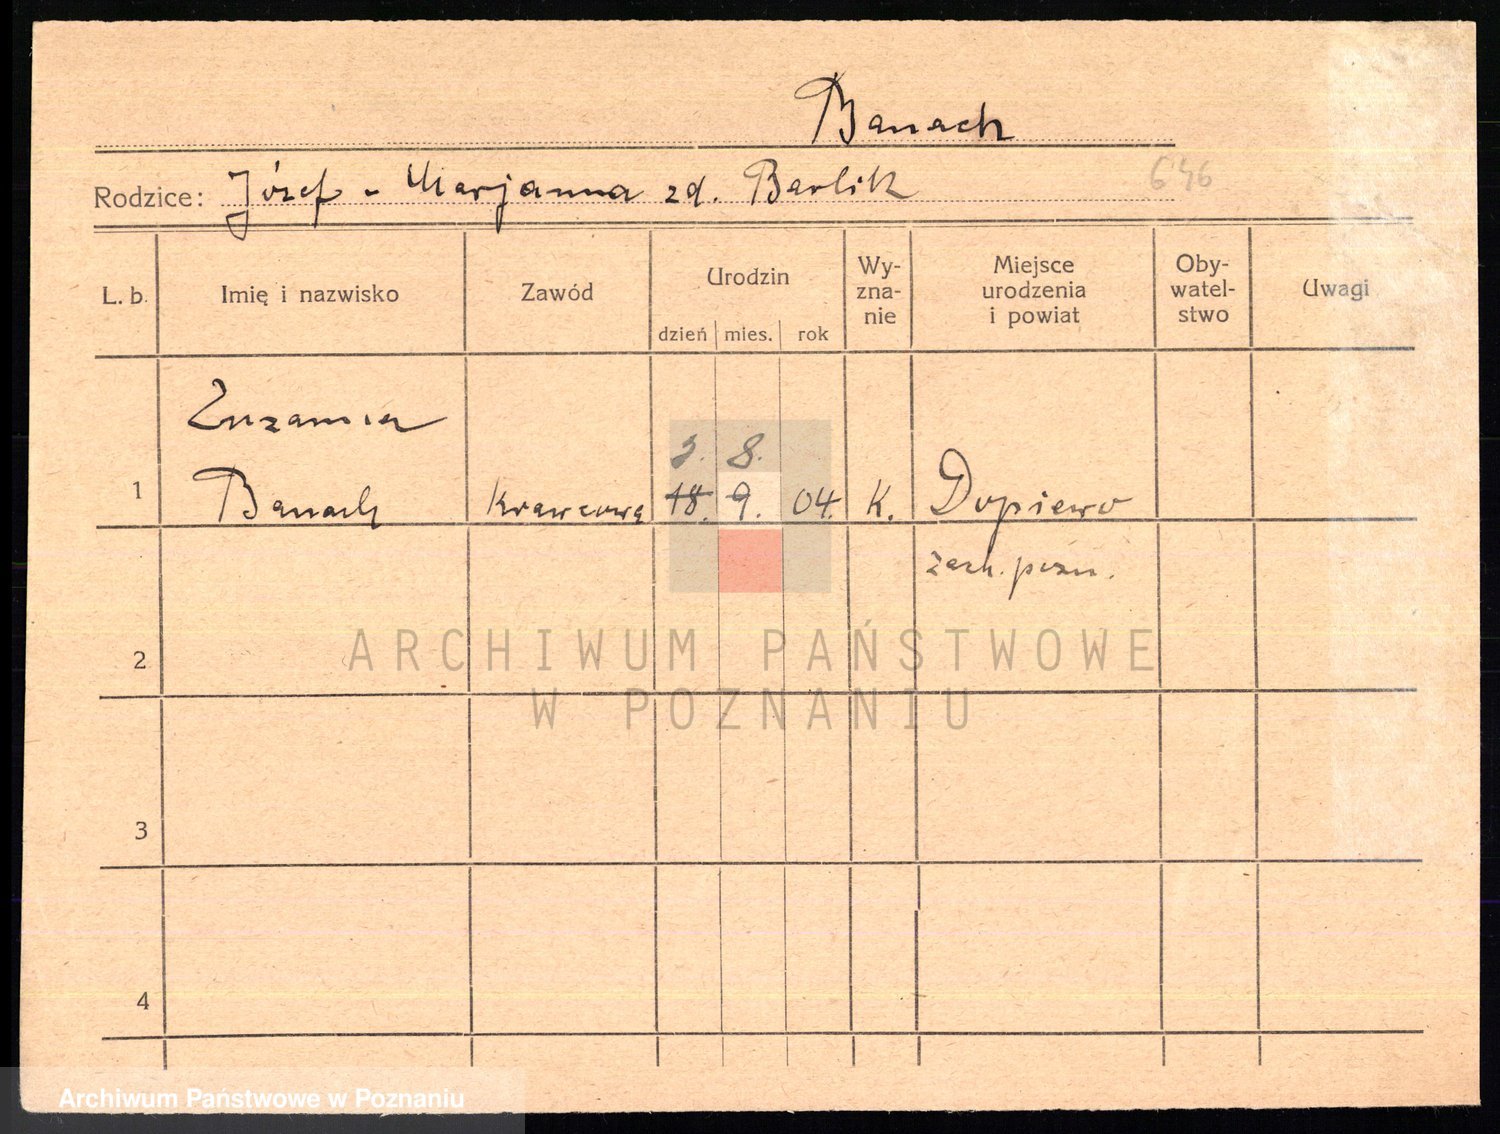 Banach
Rodzice: Józef - Marjanna zd. Barlik
646
L. b. Imię i nazwisko Zawód Urodzin dzień mies. rok Wy- zna- nie Miejsce urodzenia i powiat Oby- watel- stwo Uwagi
Zuzanna
3. 8.
1 Banach krawcową 18. 9. 04. K. Dopiewo
zach. pozn.
2
ARCHIWUM PAŃSTWOWE
W POZNANIU
3
4
Archiwum Państwowe w Poznaniu